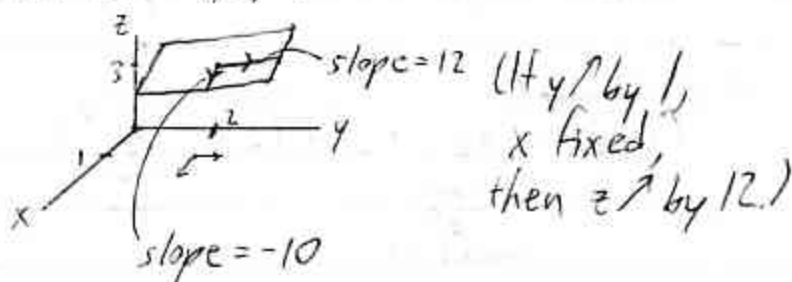 z
3
slope=12 (If y↗by 1,
2
y
x fixed,
1
then z↗by 12.)
x
slope=-10